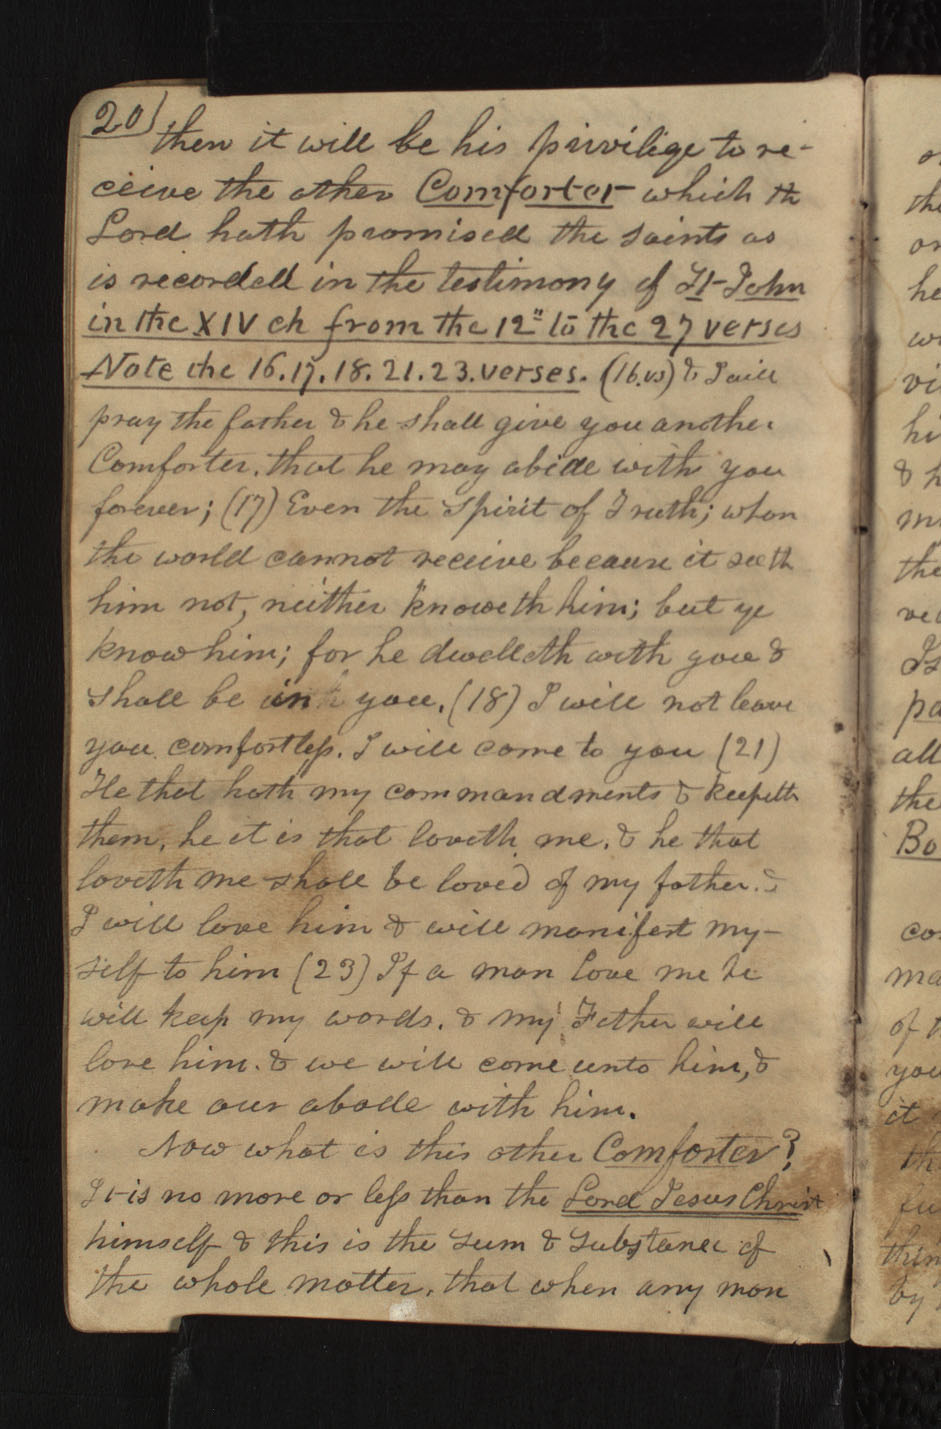 20)
then it will be his privilige to re-
ceive the other Comforter which th
Lord hath promised the saints as
is recorded in the testimony of St John
in the XIV ch from the 12" to the 27 verses
Note the 16.17.18.21.23.verses. (16.vs) & I will
pray the father & he shall give you another
Comforter, that he may abide with you
forever; (17) Even the Spirit of Truth; whom
the world cannot receive because it seeth
him not, neither knoweth him; but ye
know him; for he dwelleth with you &
shall be in you. (18) I will not leave
you comfortless. I will come to you (21)
He that hath my commandments & keepeth
them, he it is that loveth me. & he that
loveth me shall be loved of my father. &
I will love him & will manifest my-
self to him (23) If a man love me he
will keep my words. & my Father will
love him. & we will come unto him, &
make our abode with him.
Now what is this other Comforter?
It is no more or less than the Lord Jesus Christ
himself & this is the sum & substance of
the whole matter, that when any man
or
the
or
he
vi
hi
& h
the
pa
all
the
Bo
co
ma
of
you
it
th
by